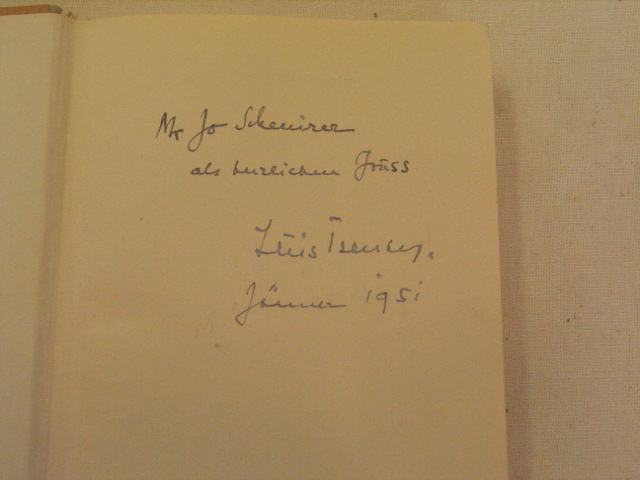 Mr Jo Scheurer
als herzlichen Gruss
Luis Trenker.
Jänner 1951